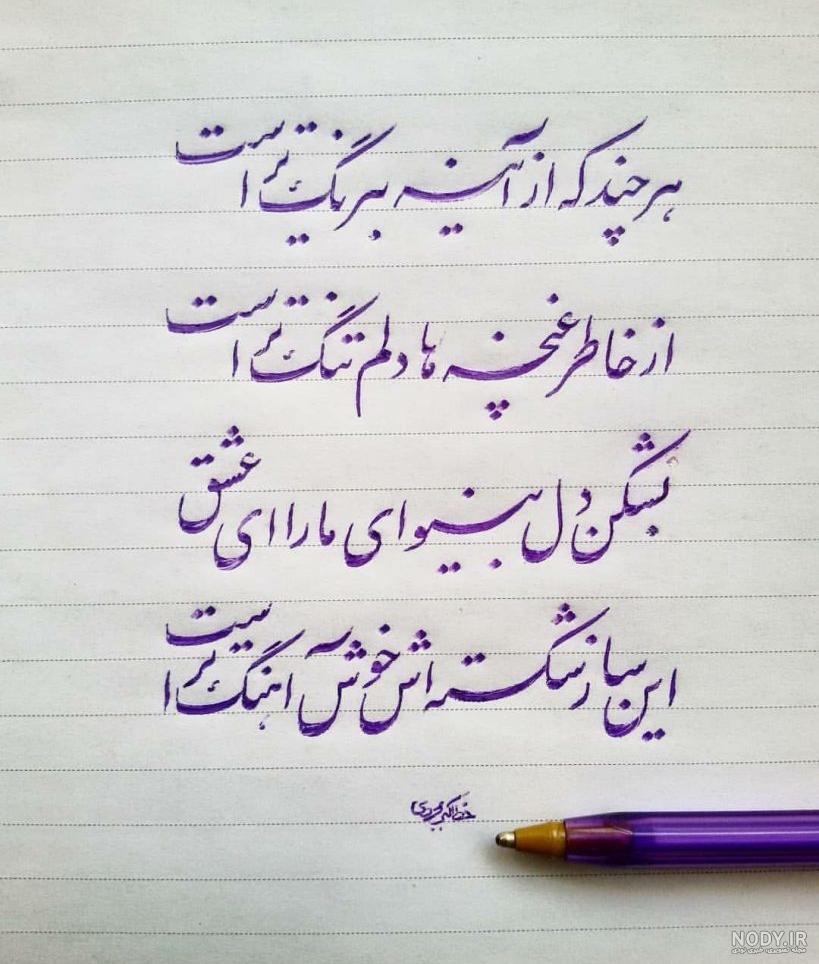 هرچند که از آینه بیرنگ تر است
از خاطر غنچه ها دلم تنگ تر است
بشکن دل بینوای ما را ای عشق
این ساز شکسته اش خوش آهنگ تر است
خط اکبر
NODY.IR